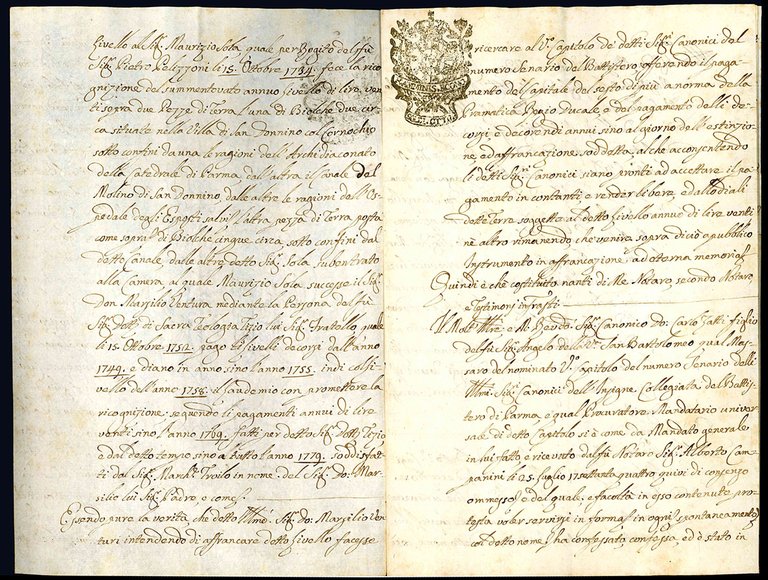 livello al Sig.r Maurizio Sola, quale per Rogito del fù
Sig.r Pietro Pelizzoni li 15. Ottobre 1734. fece la rico
gnizione del summentovato annuo livello di lire ven
ti sopra due Pezze di Terra l'una di Biolche due cir
ca situate nella Villa di San Donnino col Cornochio
sotto confini da una le ragioni dell'Archidiaconato
della Catedrale di Parma, dall'altra il Canale del
Molino di San Donnino, dalle altre le ragioni dell'Os
pedale degl'Esposti salvi. L'altra pezza di Terra posta
come sopra di Biolche cinque circa sotto confini dal
detto Canale, dalle altre detto Sig.r Sola subentrato
alla Camera, al quale Maurizio Sola successe il Sig.r
Don Marsilio Ventura mediante la Persona del fù
Sig.r Dott.r di Sacra Teologia Tizio lui Sig.r Fratello, quale
li 15. Ottobre 1752. pagò li livelli decorsi dall'anno
1749. e diano in anno sino l'anno 1755. indi col li
vello dell'anno 1758. il laudemio con promettere la
ricognizione seguendo li pagamenti annui di lire
venti sino l'anno 1769. fatti per detto Sig.r Dott.r Tizio
e dai detto tempo sino a tutto l'anno 1779. soddisfat
ti dal Sig.r March. Troilo in nome del Sig.r Do: Mar
silio lui Sig.r Padre, e come s.a
Essendo pure la verità, che detto Ill.mo Sig.r Do: Marsilio Ven
turi intendendo di affrancare detto livello facesse
ricercare al V. Capitolo de' detti Sig.ri Canonici del
numero Senario del Battistero offerendo il paga
mento del Capitale del sesto di più a norma della
Pramatica Benio Ducale, e del pagamento delli de
corsi, e decorendi annui sino al giorno dell'estinzio
ne, ed affrancazione suddetta, al che acconsentendo
li detti Sig.ri Canonici siano pronti ad accettare il pa
gamento in contanti e render libere, ed allodiali
dette Terre soggette al detto livello annuo di lire venti
nè altro rimanendo che venire sopra di ciò a pubblico
Instrumento in affrancazione, ad ottorna memorial
Quindi è che costituito nanti di Me Notaro, secondo Notaro,
e Testimonj infras.ti
Il Molt'Ill.re e M.to Rev.do Sig.r Canonico Do: Carlo Zatti figlio
del fù Sig.r Angelo della V.a San Bartolomeo qual Mas
saro del nominato V.o Capitolo del numero Senario delli
Ill.mi Sig.ri Canonici dell'Insigne Collegiata del Battis
tero di Parma, e qual Procuratore, Mandatario univer
sale di detto Capitolo sì è come da Mandato generale
in lui fatto e ricevuto dal fù Notaro Sig.r Alberto Cam
panini li 25. Luglio 17settanta quattro quivi di consenzo
ommesso, e del quale, e facoltà in esso contenute pro
testa voler servirsi in forma, in ogni spontaneamente
col detto nome, ha confessato, confessa, ed è stato in